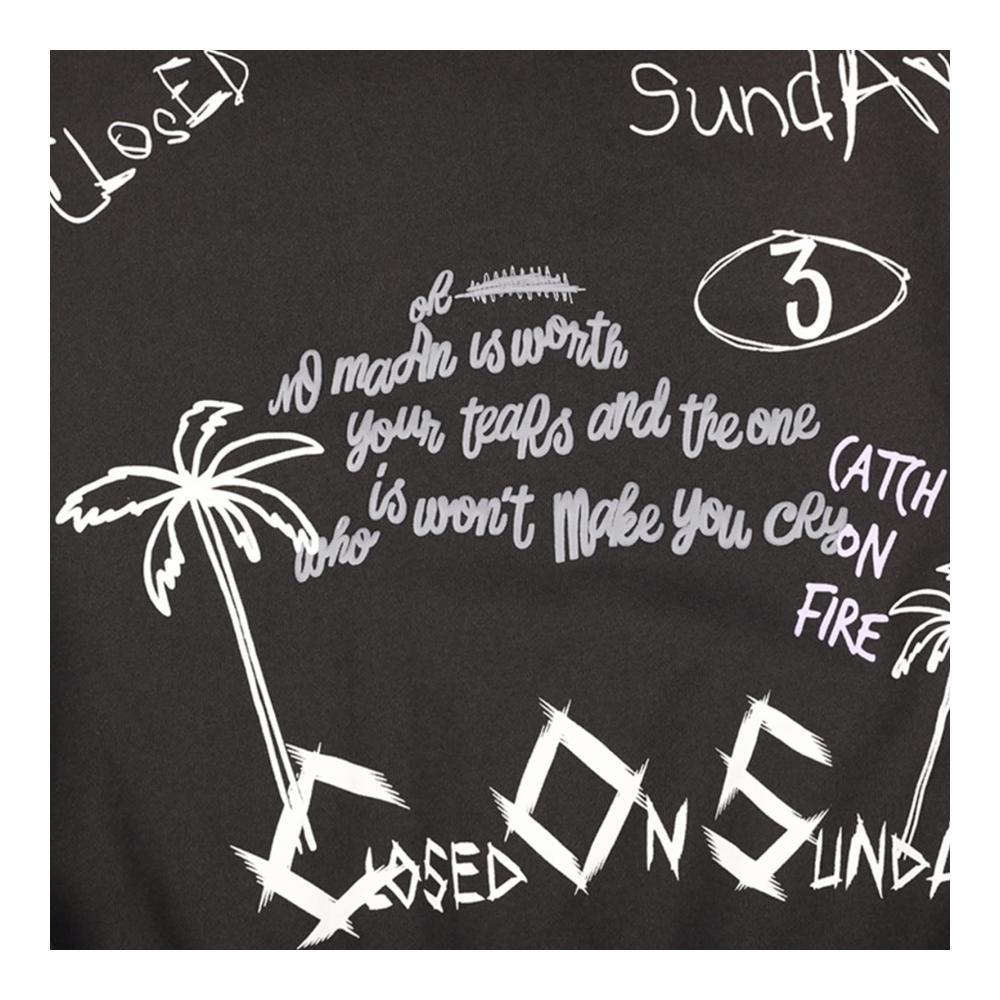 CLosED
SundAY
3
oR
NO maAn is worth
your teaRs and the one
is won't Make You cRy
who
CATCH
ON
FIRE
CLOSED ON SUNDA